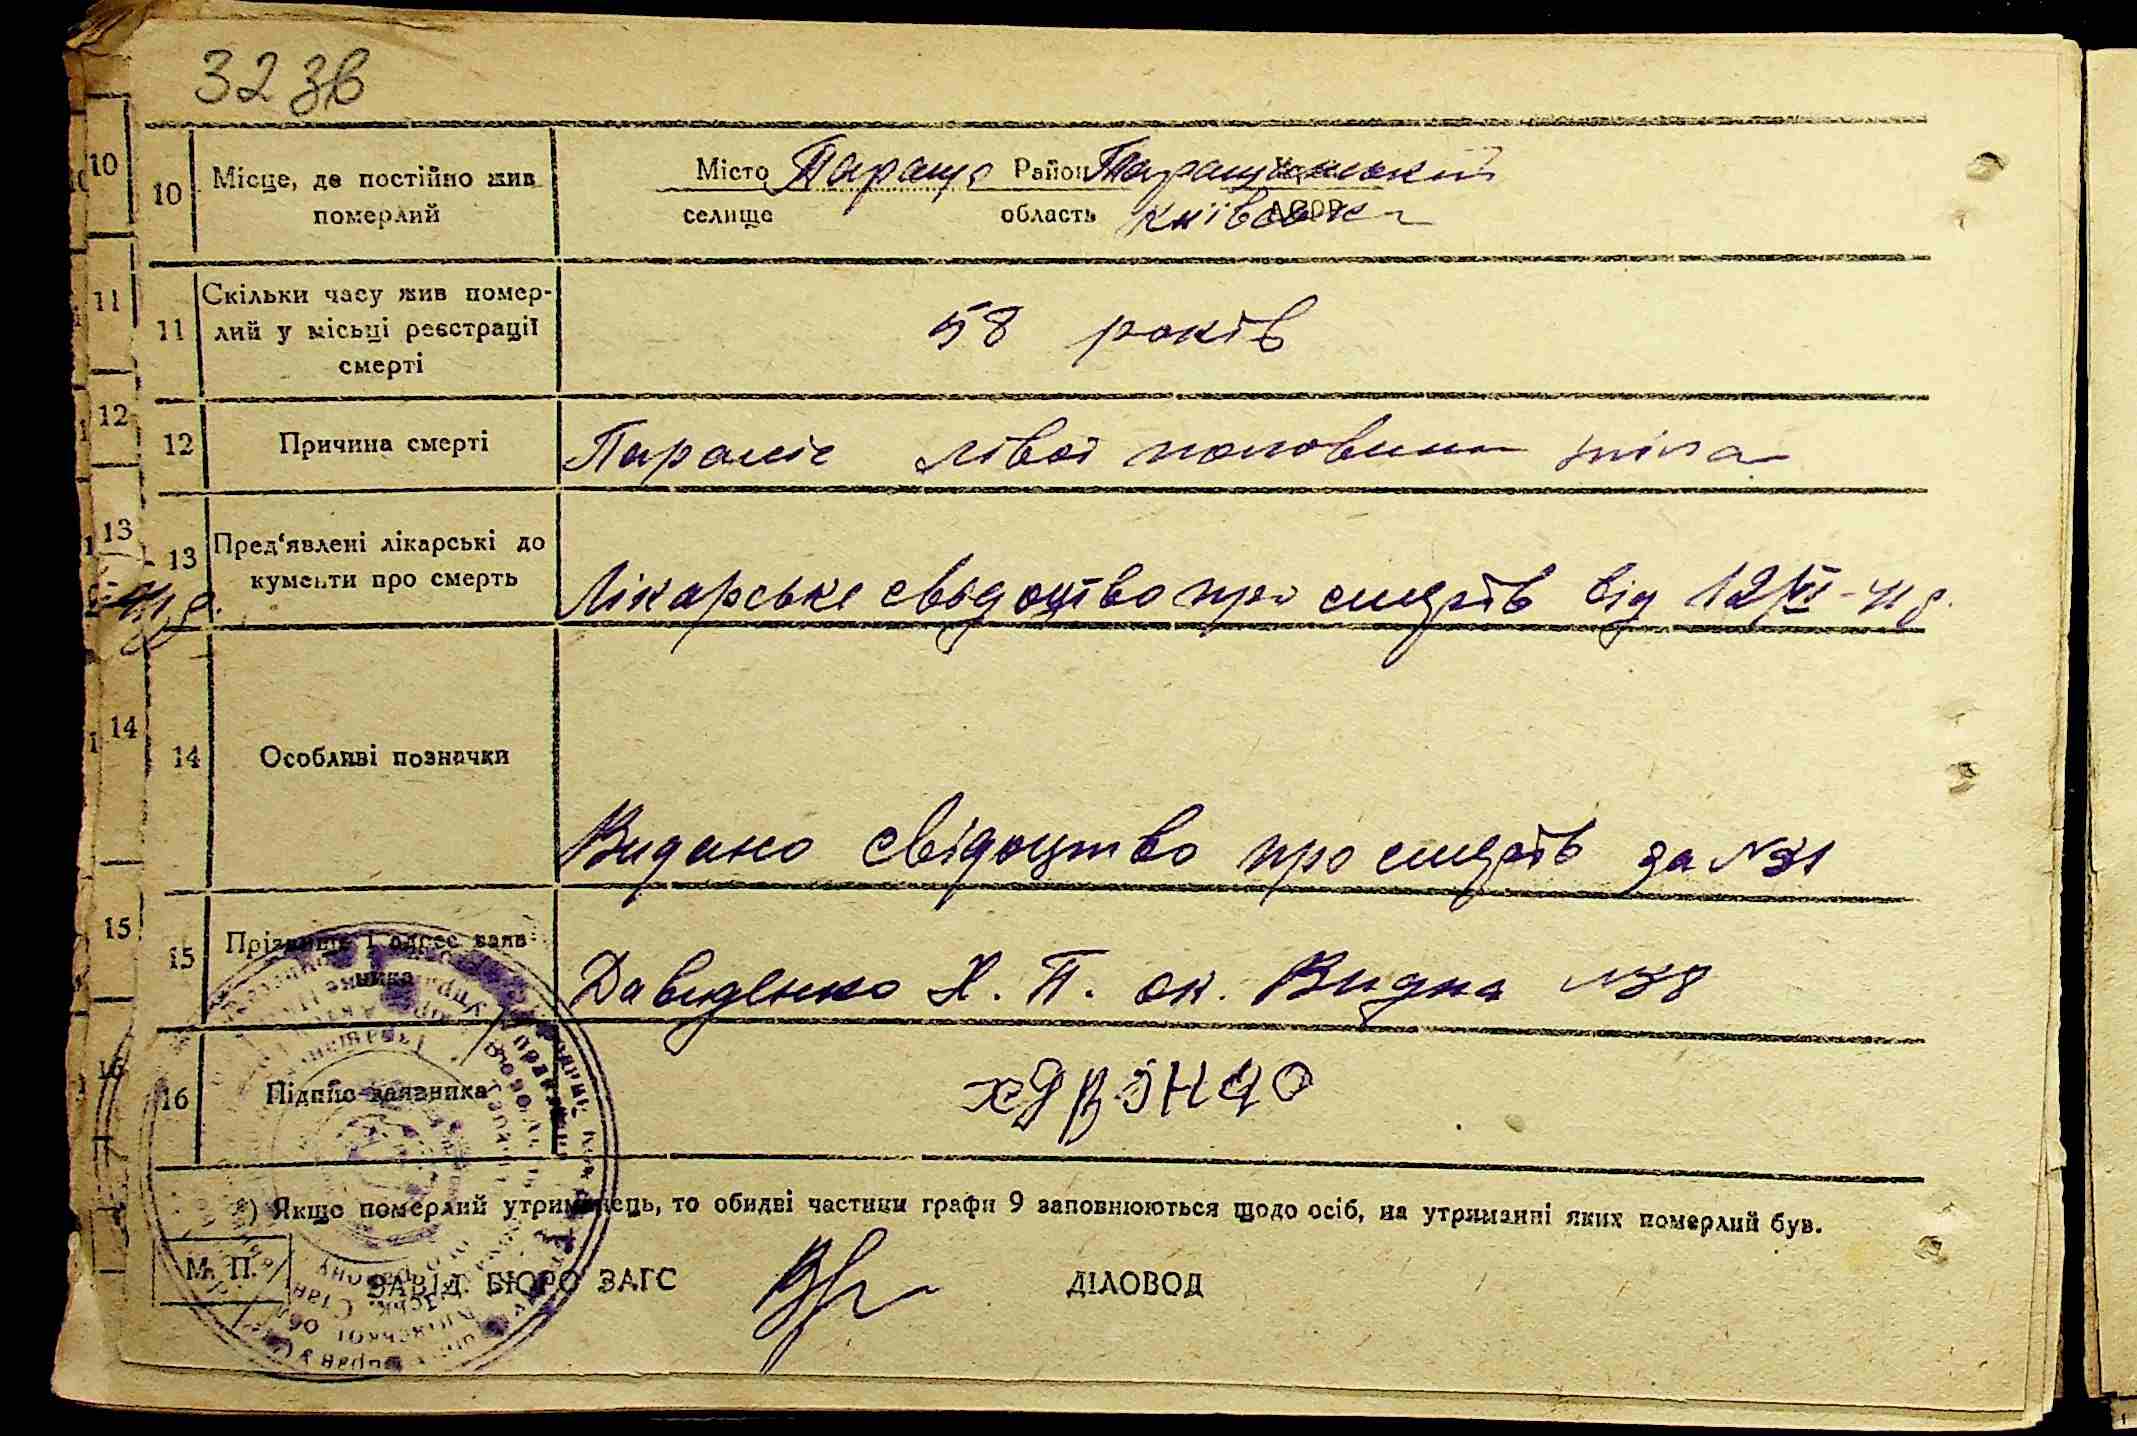 32 зв
10 Місце, де постійно жив померлий
Місто Тараща Район Таращанський
селище область Київська
11 Скільки часу жив помер-
лий у місьці реєстрації
смерті
58 років
12 Причина смерті
Параліс лівої половини тіла
13 Пред'явлені лікарські до
кументи про смерть
Лікарське свідоцтво про смерть від 12/VI-41 р.
14 Особливі позначки
Видано свідоцтво про смерть за №31
15 Прізвище і адрес заяв-
ника
Давиденко Х. П. ок. Видна №38
16 Підпис заявника
*) Якщо померлий утриманець, то обидві частини графи 9 заповнюються щодо осіб, на утриманні яких померлий був.
М. П. ЗАВІД. БЮРО ЗАГС ДІЛОВОД
10
11
12
13
14
15
16